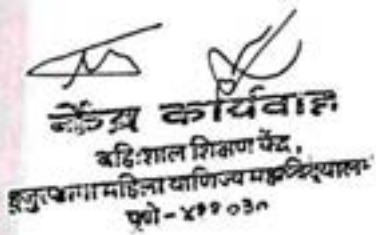 केंद्र कार्यवाह
बहिःशाल शिक्षण केंद्र,
हुजुरपागा महिला वाणिज्य महाविद्यालय
पुणे - ४११ ०३०